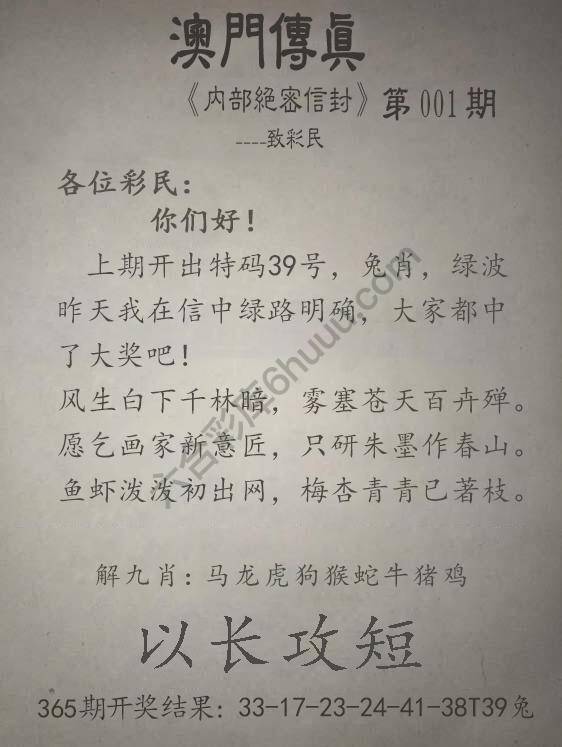 澳門傳眞
《内部絕密信封》第001期
----致彩民
各位彩民：
你们好！
上期开出特码39号，兔肖，绿波
昨天我在信中绿路明确，大家都中
了大奖吧！
风生白下千林暗，雾塞苍天百卉殚。
愿乞画家新意匠，只研朱墨作春山。
鱼虾泼泼初出网，梅杏青青已著枝。
解九肖：马龙虎狗猴蛇牛猪鸡
以长攻短
365期开奖结果：33-17-23-24-41-38T39兔
六合彩库6huuu.com